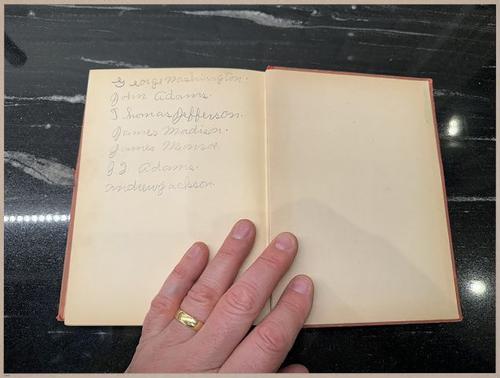 George Washington.
John Adams.
Thomas Jefferson.
James Madison.
James Monroe.
J J Adams.
andrew jackson.